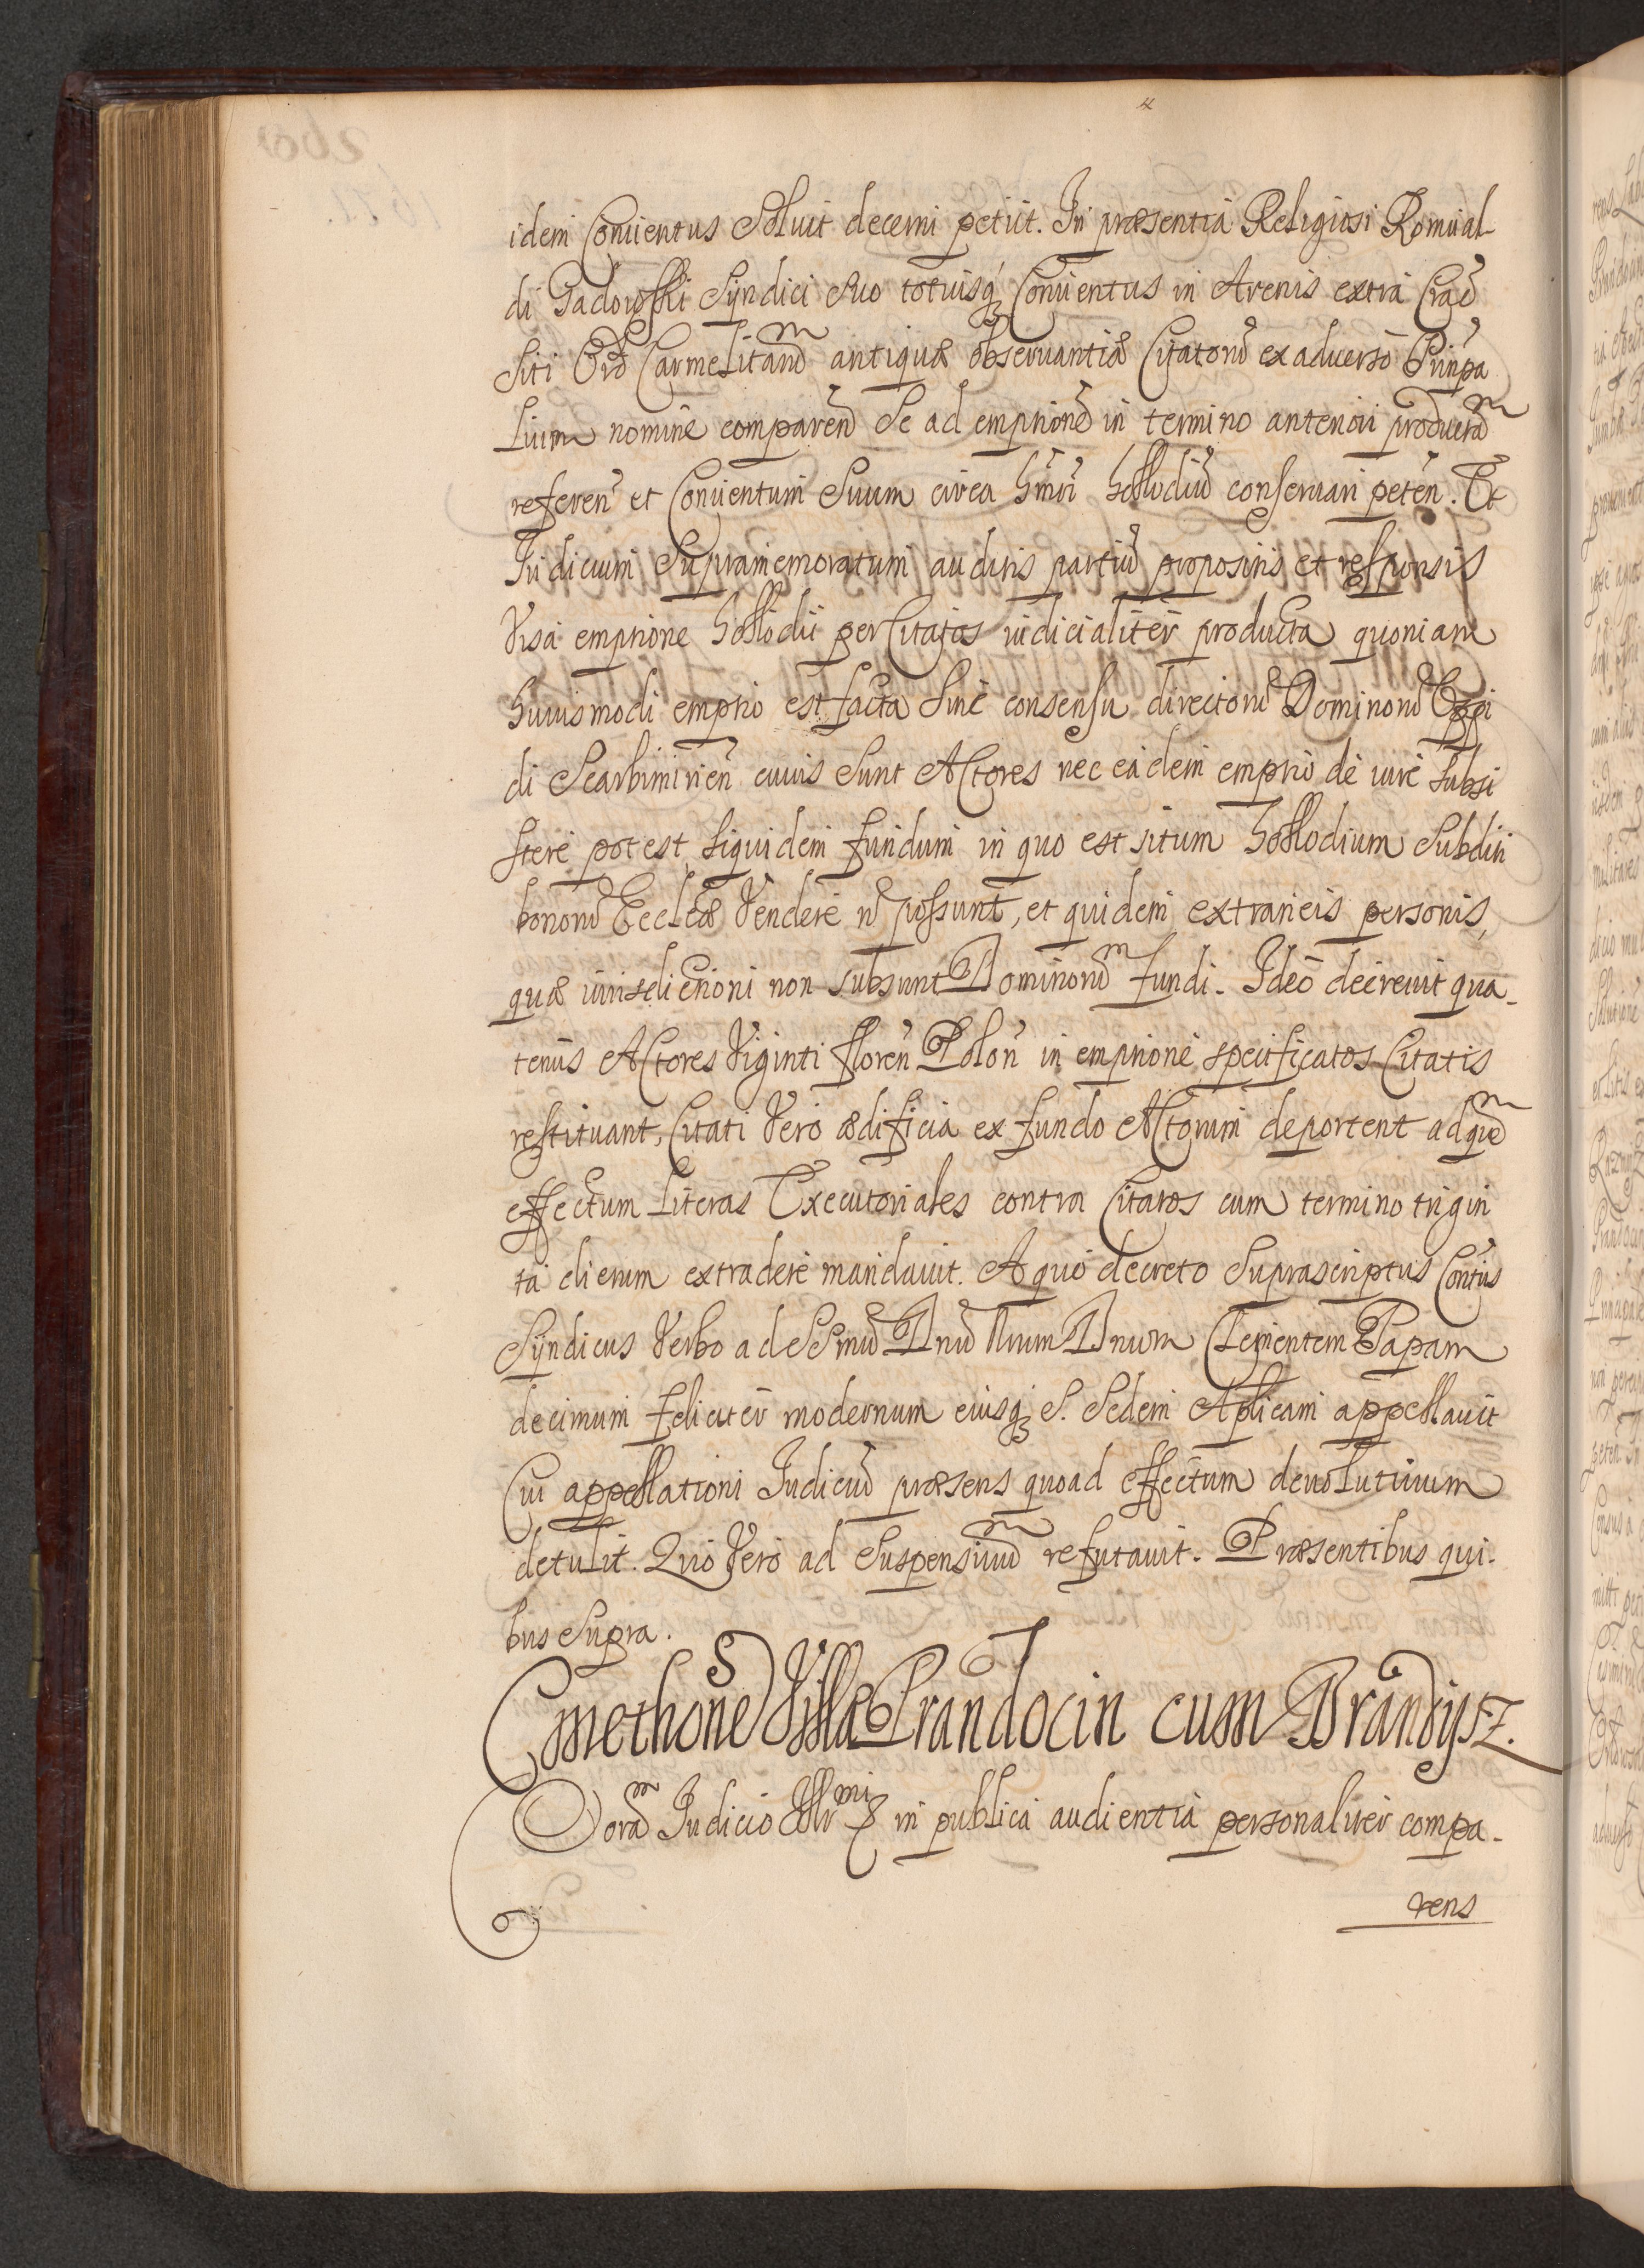 idem Conuentus Soluit decerni petiit. In præsentia Religiosi Romual-
di Gadowski Syndici suo totiusq Conuentus in Arenis extra Crac̃
Siti Ord Carmelitarũ antiquæ obseruantiæ Citatorũ ex aduerso Prinpa
Lium nomine comparen̄ Se ad emptionẽ in termino anteriori productã
referen̄ et Conuentum Suum circa hmõi hollodiũ conseruari peten̄. Et
Iudicium Supramemoratum auditis partiũ propositis et responsis
Visa emptione hollodii per Citatos iudicialiter producta quoniam
huiusmodi emptio est facta Sine consensu directorũ Dominorũ Oppi
di Scarbimirien̄ cuius Sunt Actores nec eadem emptio de iure Subsi
stere potest, siquidem fundum in quo est situm hollodium Subditi
bonorũ Eccleæ Vendere ñ possunt, et quidem extraneis personis,
quæ iurisdictioni non subsunt Dominorũ fundi. Ideo decreuit qua-
tenus Actores Viginti floren̄ Polon̄ in emptione specificatos Citatis
restituant, Citati Vero ædificia ex fundo Actorum deportent ad quẽ
effectum Literas Executoriales contra Citatos cum termino trigin
ta dierum extradere mandauit. A quo decreto Suprascriptus Contus
Syndicus Verbo ad SSmũ Dnũ Nrum Dnum Clementem Papam
decimum feliciter modernum eiusq S. Sedem Aplicam appellauit
Cui appellationi Iudiciũ præsens quoad effectum deuolutiuum
detulit. Quo Vero ad Suspensiuũ refutauit. Præsentibus qui-
bus Supra.
Cmethones Villæ Prandocin cum Brandysz.
Corã Iudicio Illrmi &c in publica audientia personaliter compa-
rens